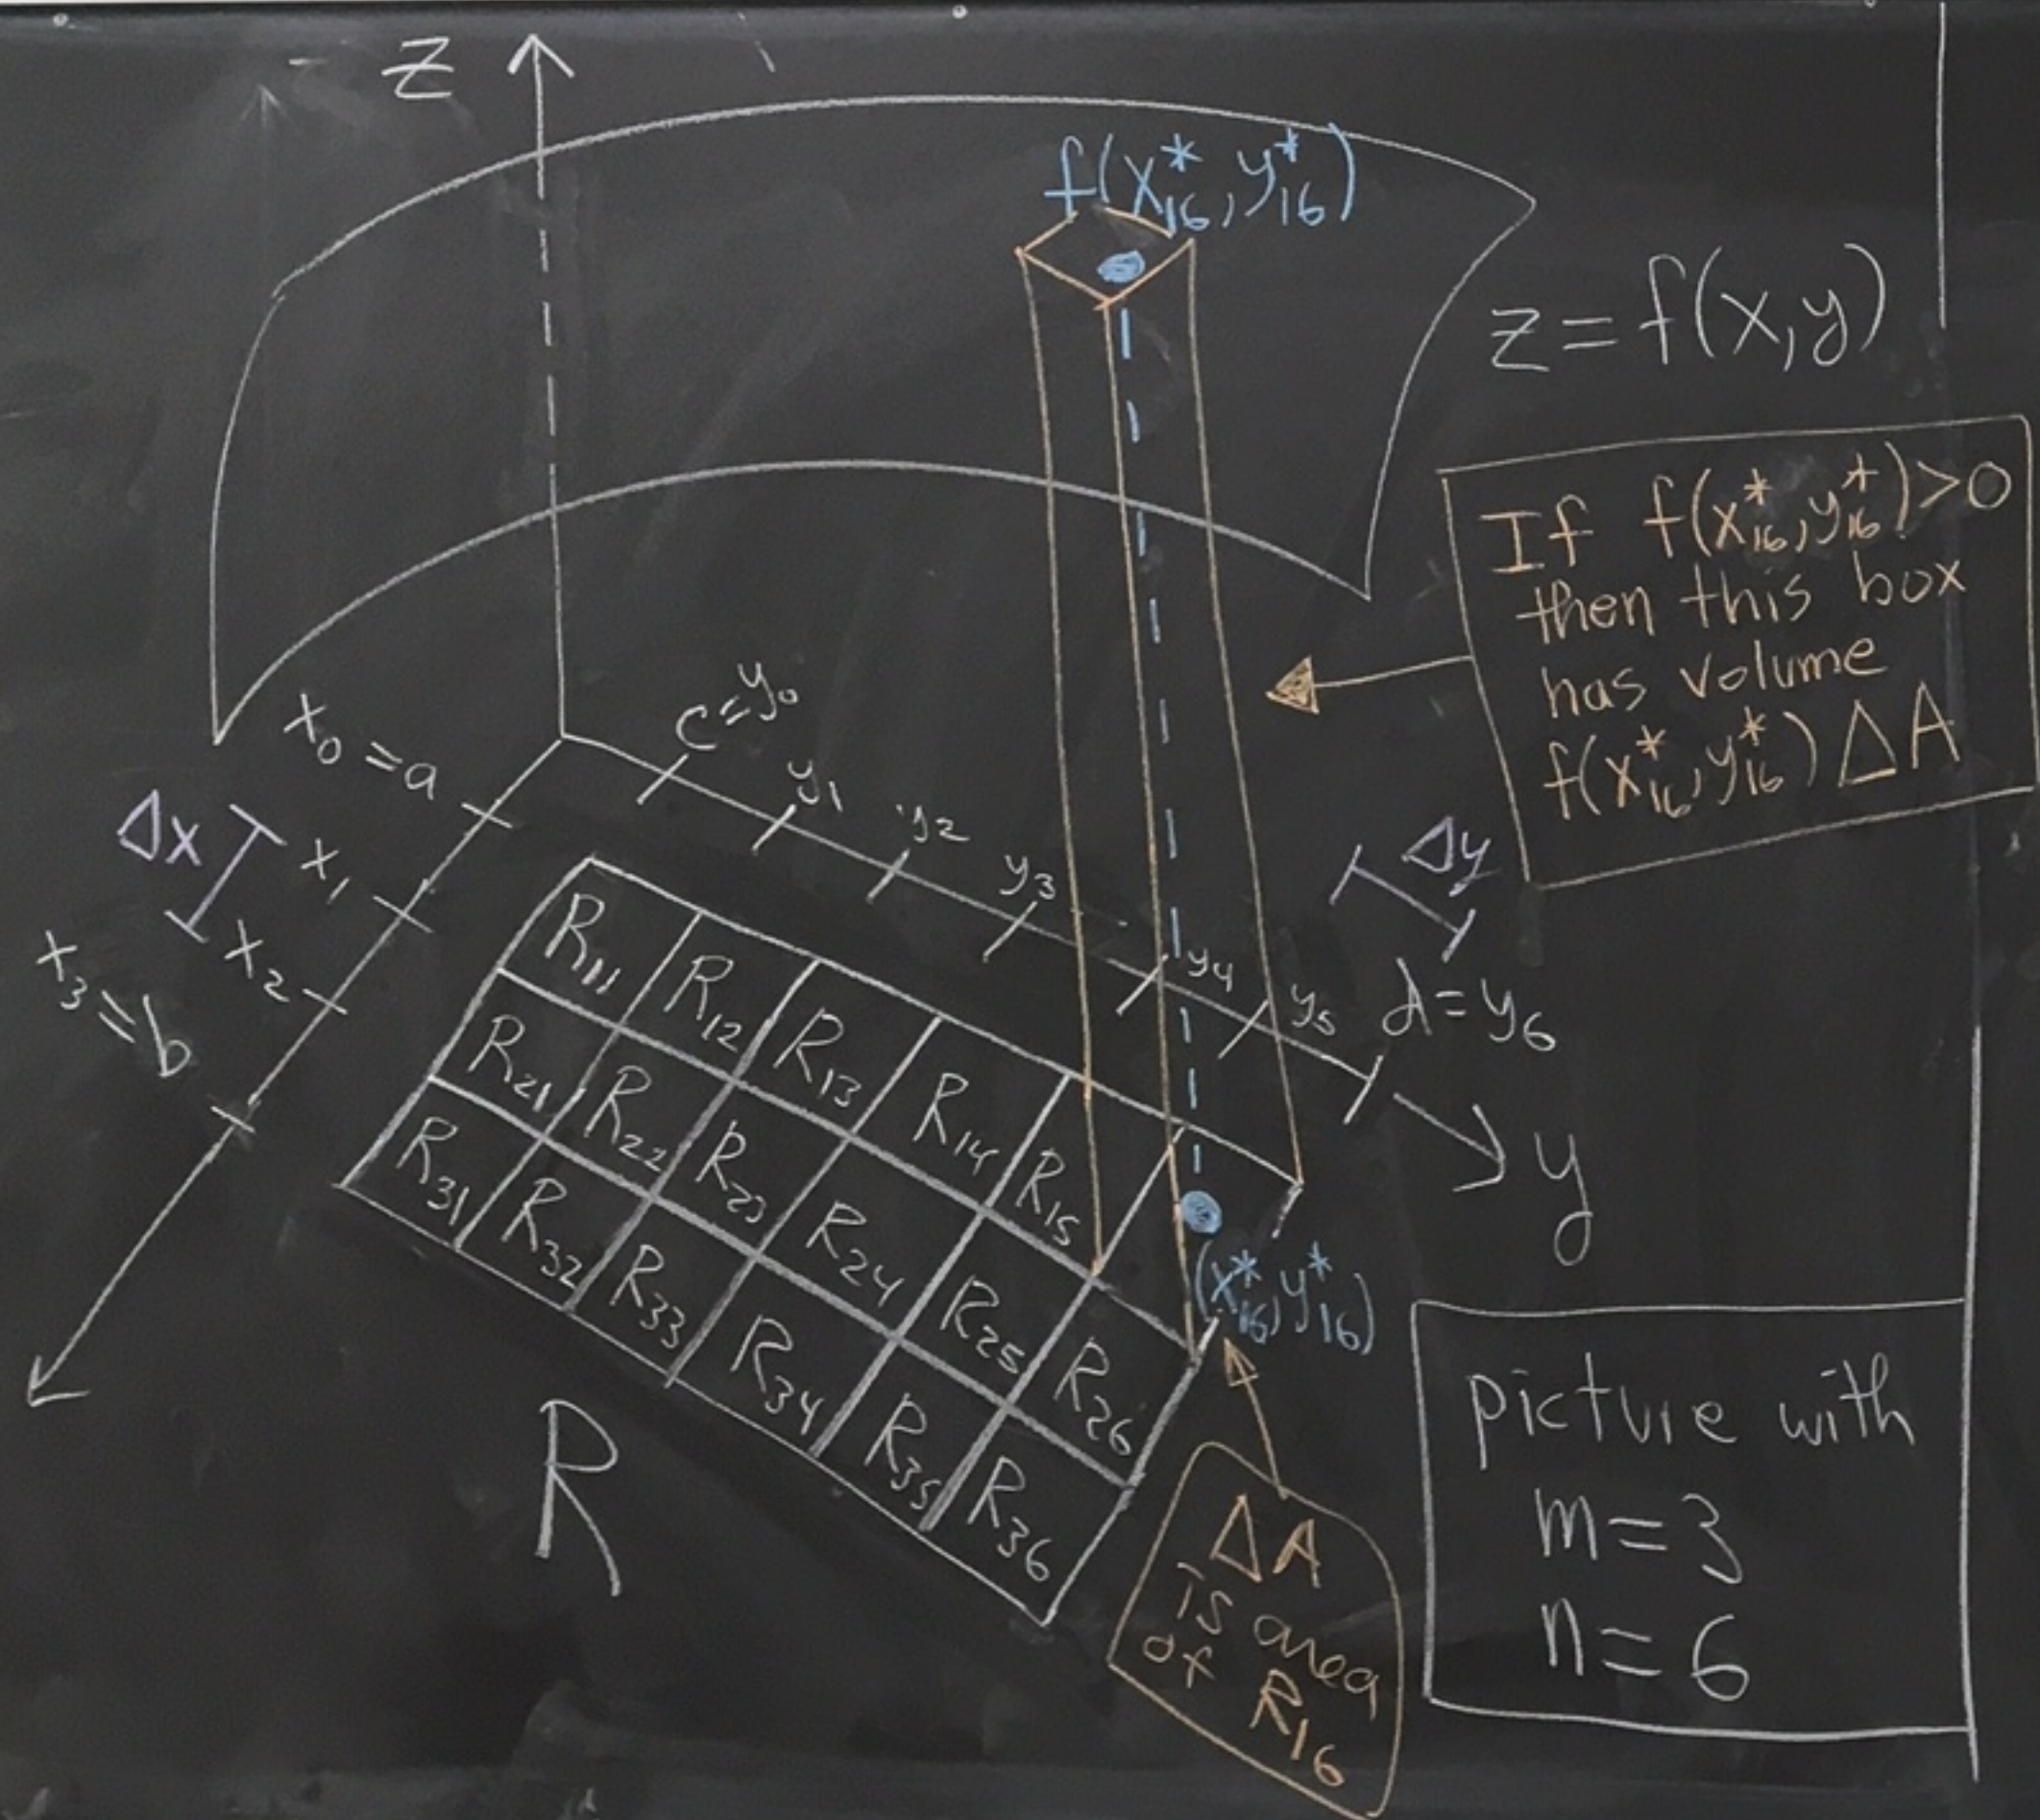 z
f(x*₁₆, y*₁₆)
z = f(x,y)
If f(x*₁₆, y*₁₆) > 0
then this box
has volume
f(x*₁₆, y*₁₆) ΔA
x₀ = a
x₁
x₂
x₃ = b
Δx
c = y₀
y₁
y₂
y₃
y₄
y₅
d = y₆
Δy
y
R₁₁ R₁₂ R₁₃ R₁₄ R₁₅
R₂₁ R₂₂ R₂₃ R₂₄ R₂₅ R₂₆
R₃₁ R₃₂ R₃₃ R₃₄ R₃₅ R₃₆
(x*₁₆, y*₁₆)
R
ΔA
is area
of R₁₆
picture with
m = 3
n = 6